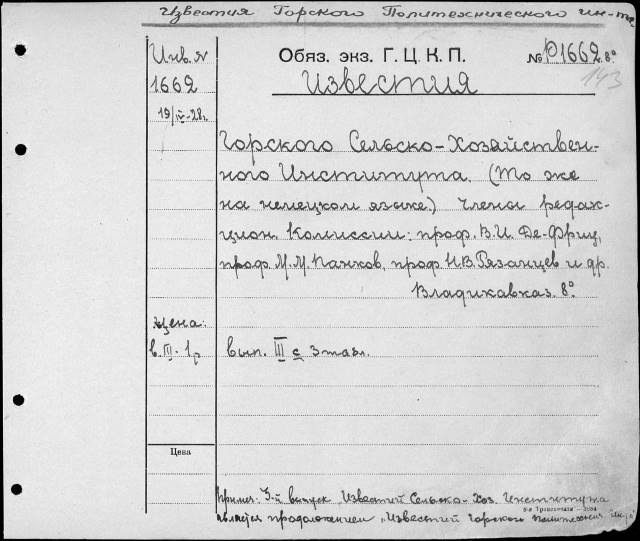 Известия Горского Политехнического ин-та
Инв. №
1662
19/IV-28 г.
Обяз. экз. Г. Ц. К. П.
№ Р1662 8°
143
Известия
Горского Сельско-Хозяйствен-
ного Института. (То же
на немецком языке.) Члены редак-
цион. Комиссии: проф. В.И. Де-Фриц,
проф. М.М. Панков, проф. Н.В. Рязанцев и др.
Владикавказ. 8°.
Цена:
в. III - 1 р
вып. III с 3 табл.
Цена
Примеч. 3-й выпуск "Известий Сельско-Хоз. Института
является продолжением "Известий Горского Политехнич. Ин-та"